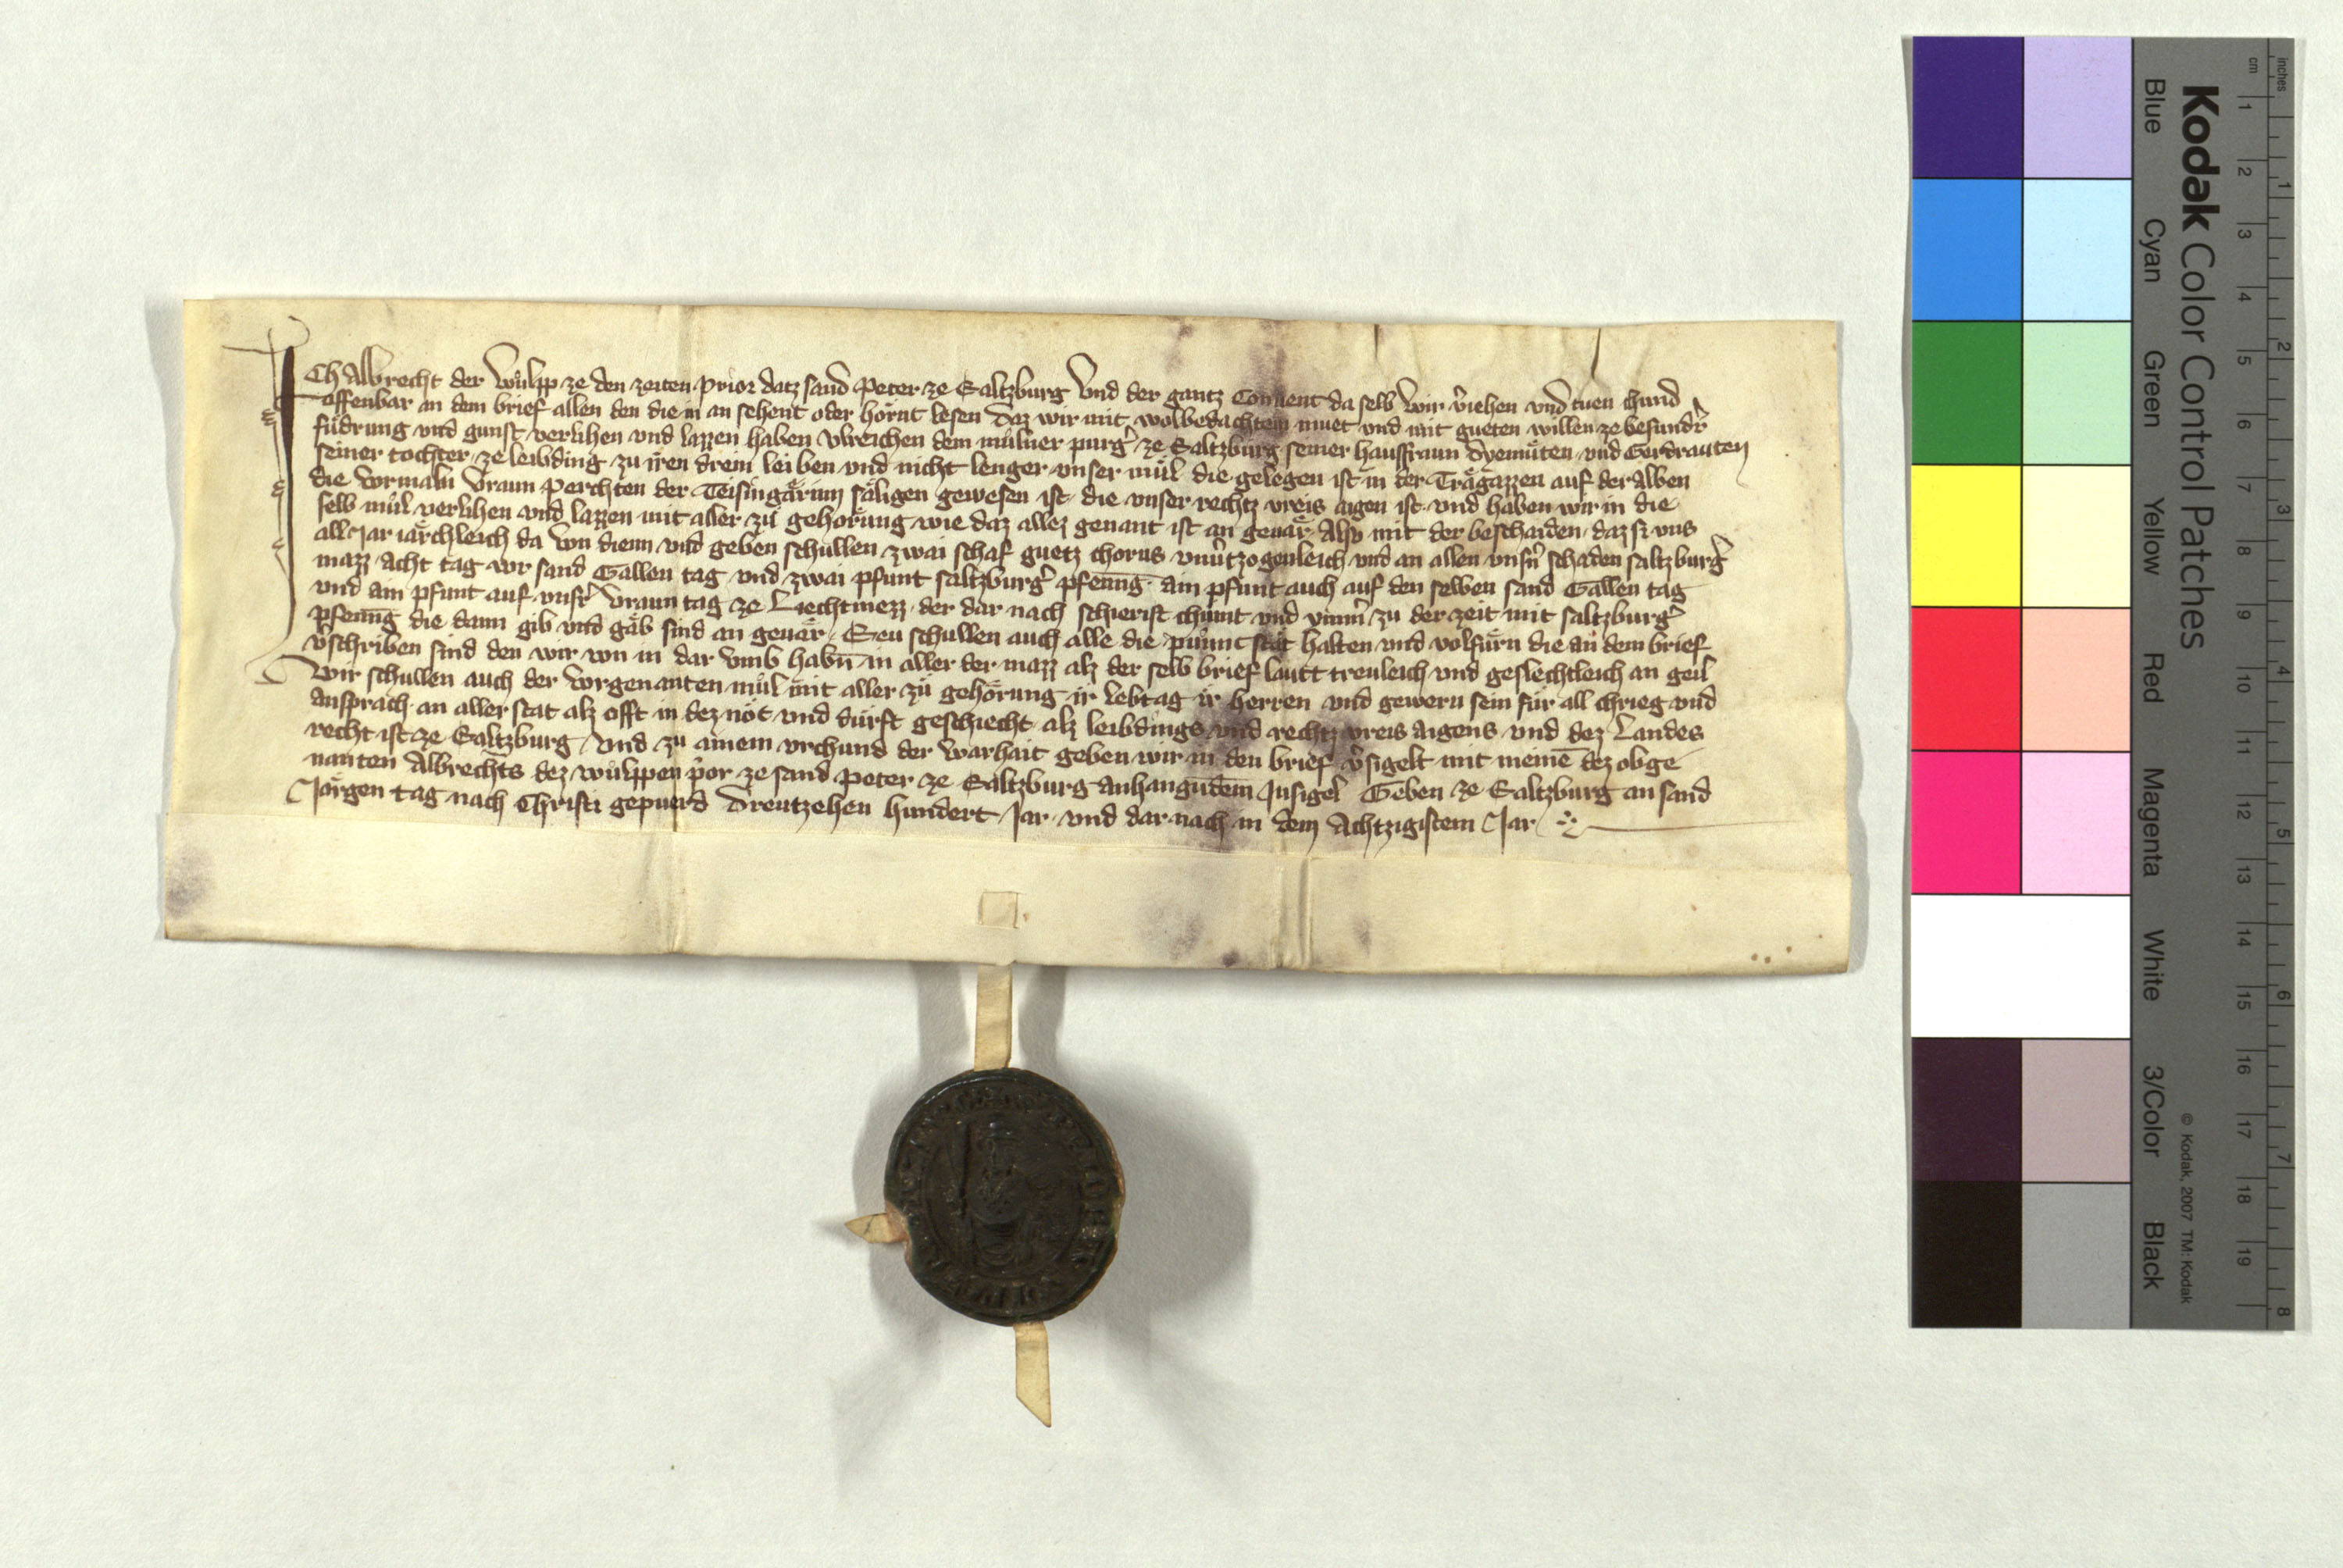 ICh Albrecht der Wuͤlpp ze den zeiten prior datz sand Peter ze Saltzburg Vnd der gantz Conuent da selb Wir v̓iehen vnd tuen chund
offenbar an dem brief allen den die in an sehent oder hoͤrnt lesen Daz wir mit wolbedachtem muet vnd mit gueten willen ze besundr̓
fuͤdrung vnd gunst verlihen vnd lazzen haben Vlreichen dem mulner purg̓ ze Saltzburg seiner hausfraun Dyemuͤten vnd Gerdrauten
seiner tochter ze leibding zu iren drein leiben vnd nicht lenger vnser muͤl die gelegen ist in der Traͤgazzen auf der Alben
die vormaln vraun Perchten der Teisingaͤrinn saͤligen gewesen ist die vnser rechtz vreis aigen ist vnd haben wir in die
selb muͤl verlihen vnd lazzen mit aller zuͤ gehoͤrung wie daz allez genant ist an geuaͤr Also mit der beschaiden daz si vns
all Jar iaͤrchleich da von dienn vnd geben schullen zwai schaf guetz chorns vnu̓tzogenleich vnd an allen vnsn̓ schaden saltzburg̓
mazz acht tag vor sand Gallen tag vnd zwai pfunt saltzburg̓ pfenn̄g ain pfunt auch auf den selben sand Gallen tag
vnd ain pfunt auf vnsr̓ vraun tag ze Liechtmezz der dar nach schierist chumt vnd ymm̓ zu der zeit mit saltzburg̓
pfenn̄g die dann gib vnd gaͤb sind an geuaͤr Seu schullen auch alle die punnt staͤt halten vnd volfuͤrn die an dem brief
v̓schriben sind den wir von in dar vmb habn̄ in aller der mazz alz der selb brief lautt treuleich vnd geslechtleich an geuͤ
Wir schullen auch der vorgenanten muͤl mit aller zuͤ gehoͤrung ir lebtag ir herren vnd gewern sein fuͤr all chrieg vnd
ansprach an aller stat alz offt in dez not vnd durft geschiecht alz leibdings vnd rechtz vreis aigens vnd dez Landes
recht ist ze Saltzburg Vnd zu ainem vrchund der warhait geben wir in den brief v̓sigelt mit meinē dez obge
nanten Albrechts dez wuͤlppen p̓or ze sand Peter ze Saltzburg anhangūdem Insigel Geben ze Saltzburg an sand
Joͤrgen tag nach Christi gepuerd Dreutzehen hundert Jar vnd dar nach in dem Achtzigistem Jar
Kodak Color Control Patches
© Kodak, 2007 TM: Kodak
Blue Cyan Green Yellow Red Magenta White 3/Color Black
cm 1 2 3 4 5 6 7 8 9 10 11 12 13 14 15 16 17 18 19
inches 1 2 3 4 5 6 7 8